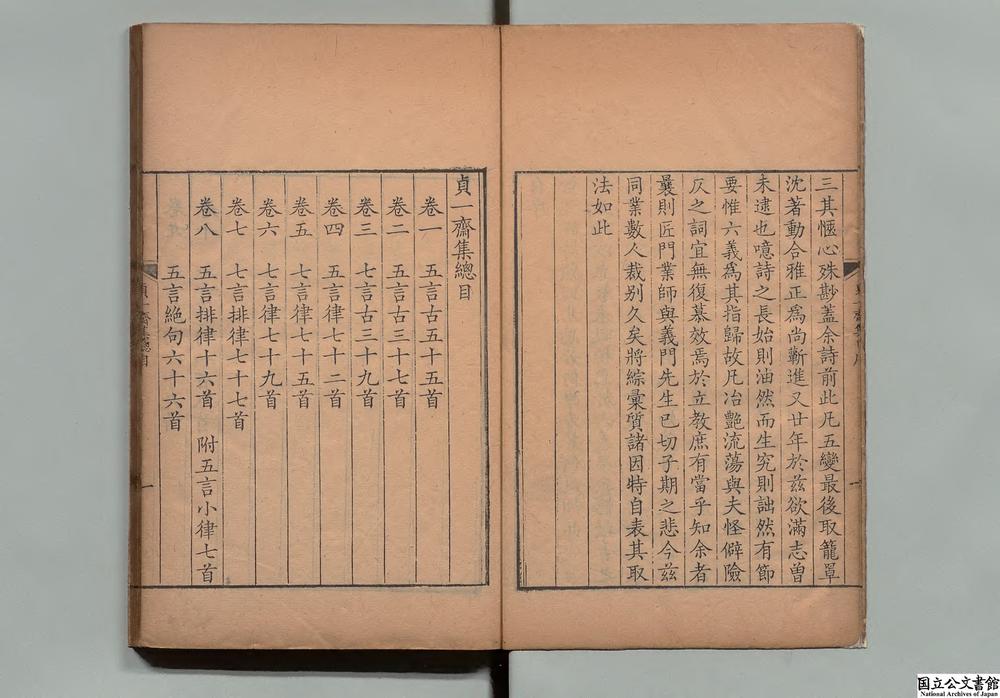 三其愜心殊尠蓋余詩前此凡五變最後取籠罩
沈著動合雅正為尚蘄進又廿年於茲欲滿志曽
未逮也噫詩之長始則油然而生究則詘然有節
要惟六義爲其指歸故凡冶艷流蕩與夫怪僻險
仄之詞宜無復慕效焉於立教庶有當乎知余者
曩則匠門業師與義門先生已切子期之悲今茲
同業數人裁别久矣將綜彙質諸因特自表其取
法如此
貞一齋集總目
卷一 五言古五十五首
卷二 五言古三十七首
卷三 七言古三十九首
卷四 五言律七十二首
卷五 七言律七十五首
卷六 七言律七十九首
卷七 七言排律七十七首
卷八 五言排律十六首 附五言小律七首
五言絶句六十六首
貞一齋集總目
一
国立公文書館
National Archives of Japan